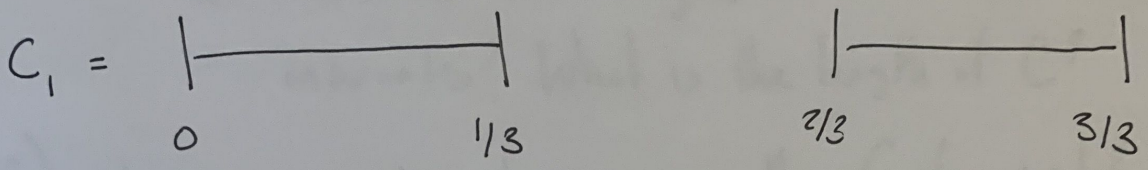 C₁ =
0 1/3 2/3 3/3